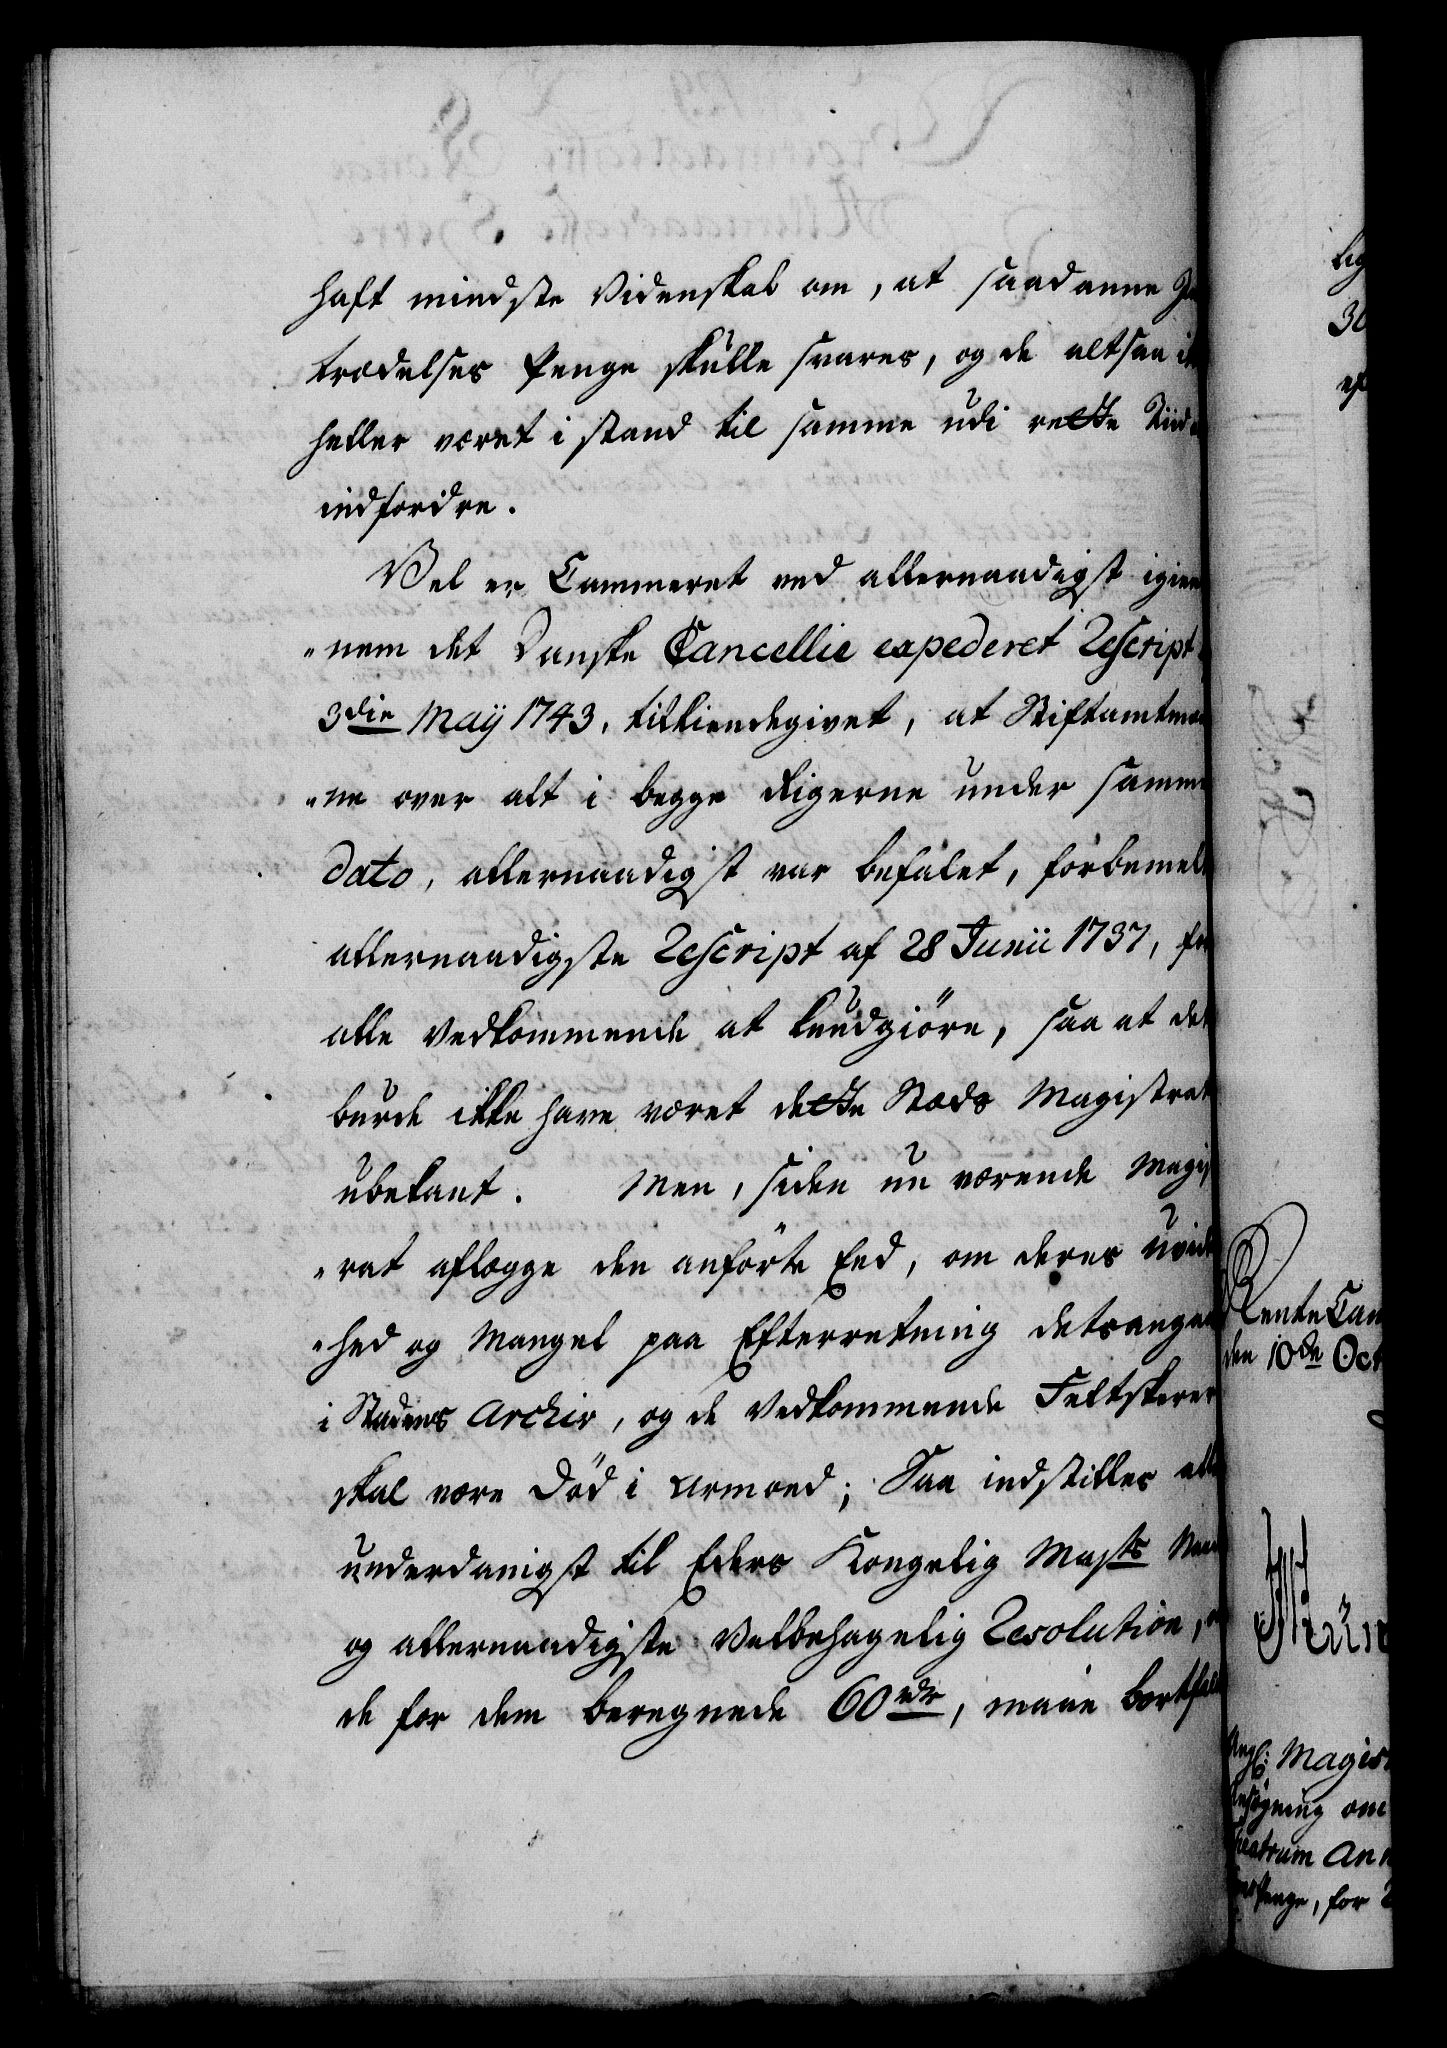 haft mindste Videnskab om, at saadanne
trædelses Penge skulle svares, og de altsaa
heller været i stand til samme udi rette Tiid
indfordre.
Vel er Cammeret ved allernaadigst igien
"nem det Danske Cancellie expederet Rescript
3die Maij 1743, tilkiendegivet, at Stiftamtmæn
"ne over alt i begge Rigerne under samme
dato, allernaadigst var befalet, forbemel
allernaadigste Rescript af 28 Junii 1737, for
alle Vedkommende at kundgiöre, saa at det
burde ikke have været dette Stæds Magistrat
ubekant. Men, siden nu værende Magist
"rat aflægge den anförte Eed, om deres uvid
"hed og Mangel paa Efterretning detsangaa
i Stadens Archiv, og de Vedkommende Feltskerer
skal være Död i Armoed; Saa indstilles aller
underdanigst til Eders Kongelig Mayts
og allernaadigste Velbehagelig Resolution,
de for dem beregnede 60 rdr, maae bortfal
RenteCam
den 10de Oct
Magis
om
Theatrum An
Penge, for